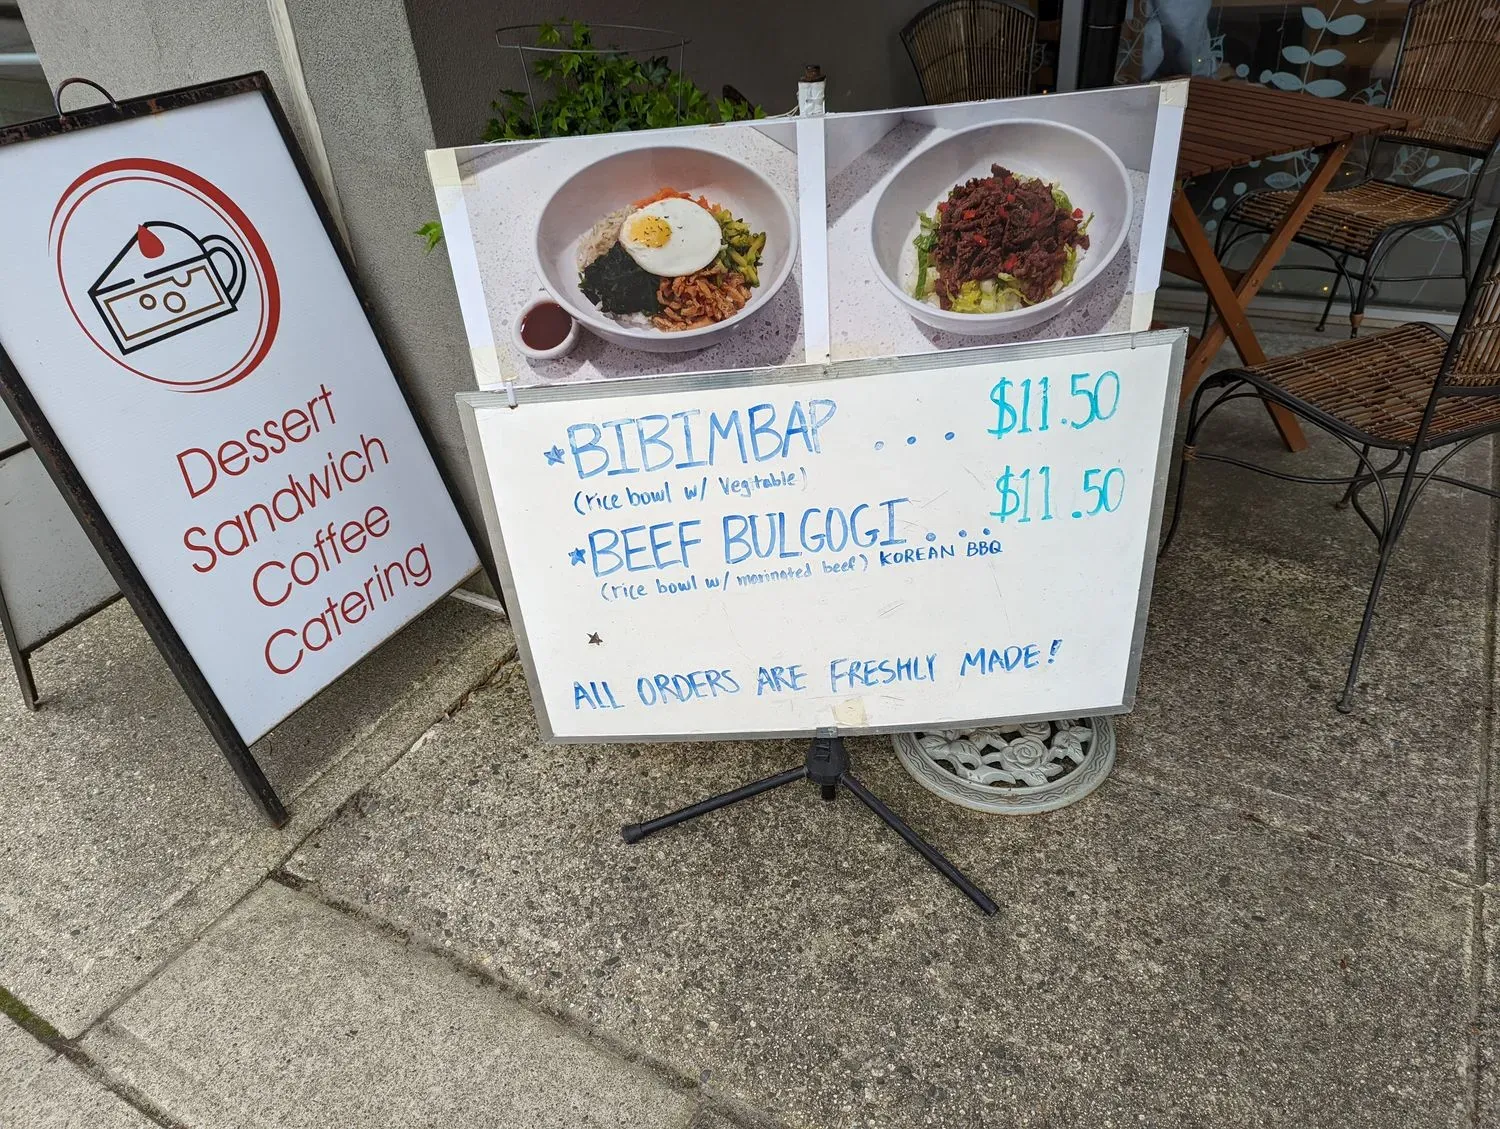 Dessert
Sandwich
Coffee
Catering
BIBIMBAP . . . $11.50
(rice bowl w/ Vegitable)
BEEF BULGOGI . . . $11.50
(rice bowl w/ marinated beef) KOREAN BBQ
ALL ORDERS ARE FRESHLY MADE!